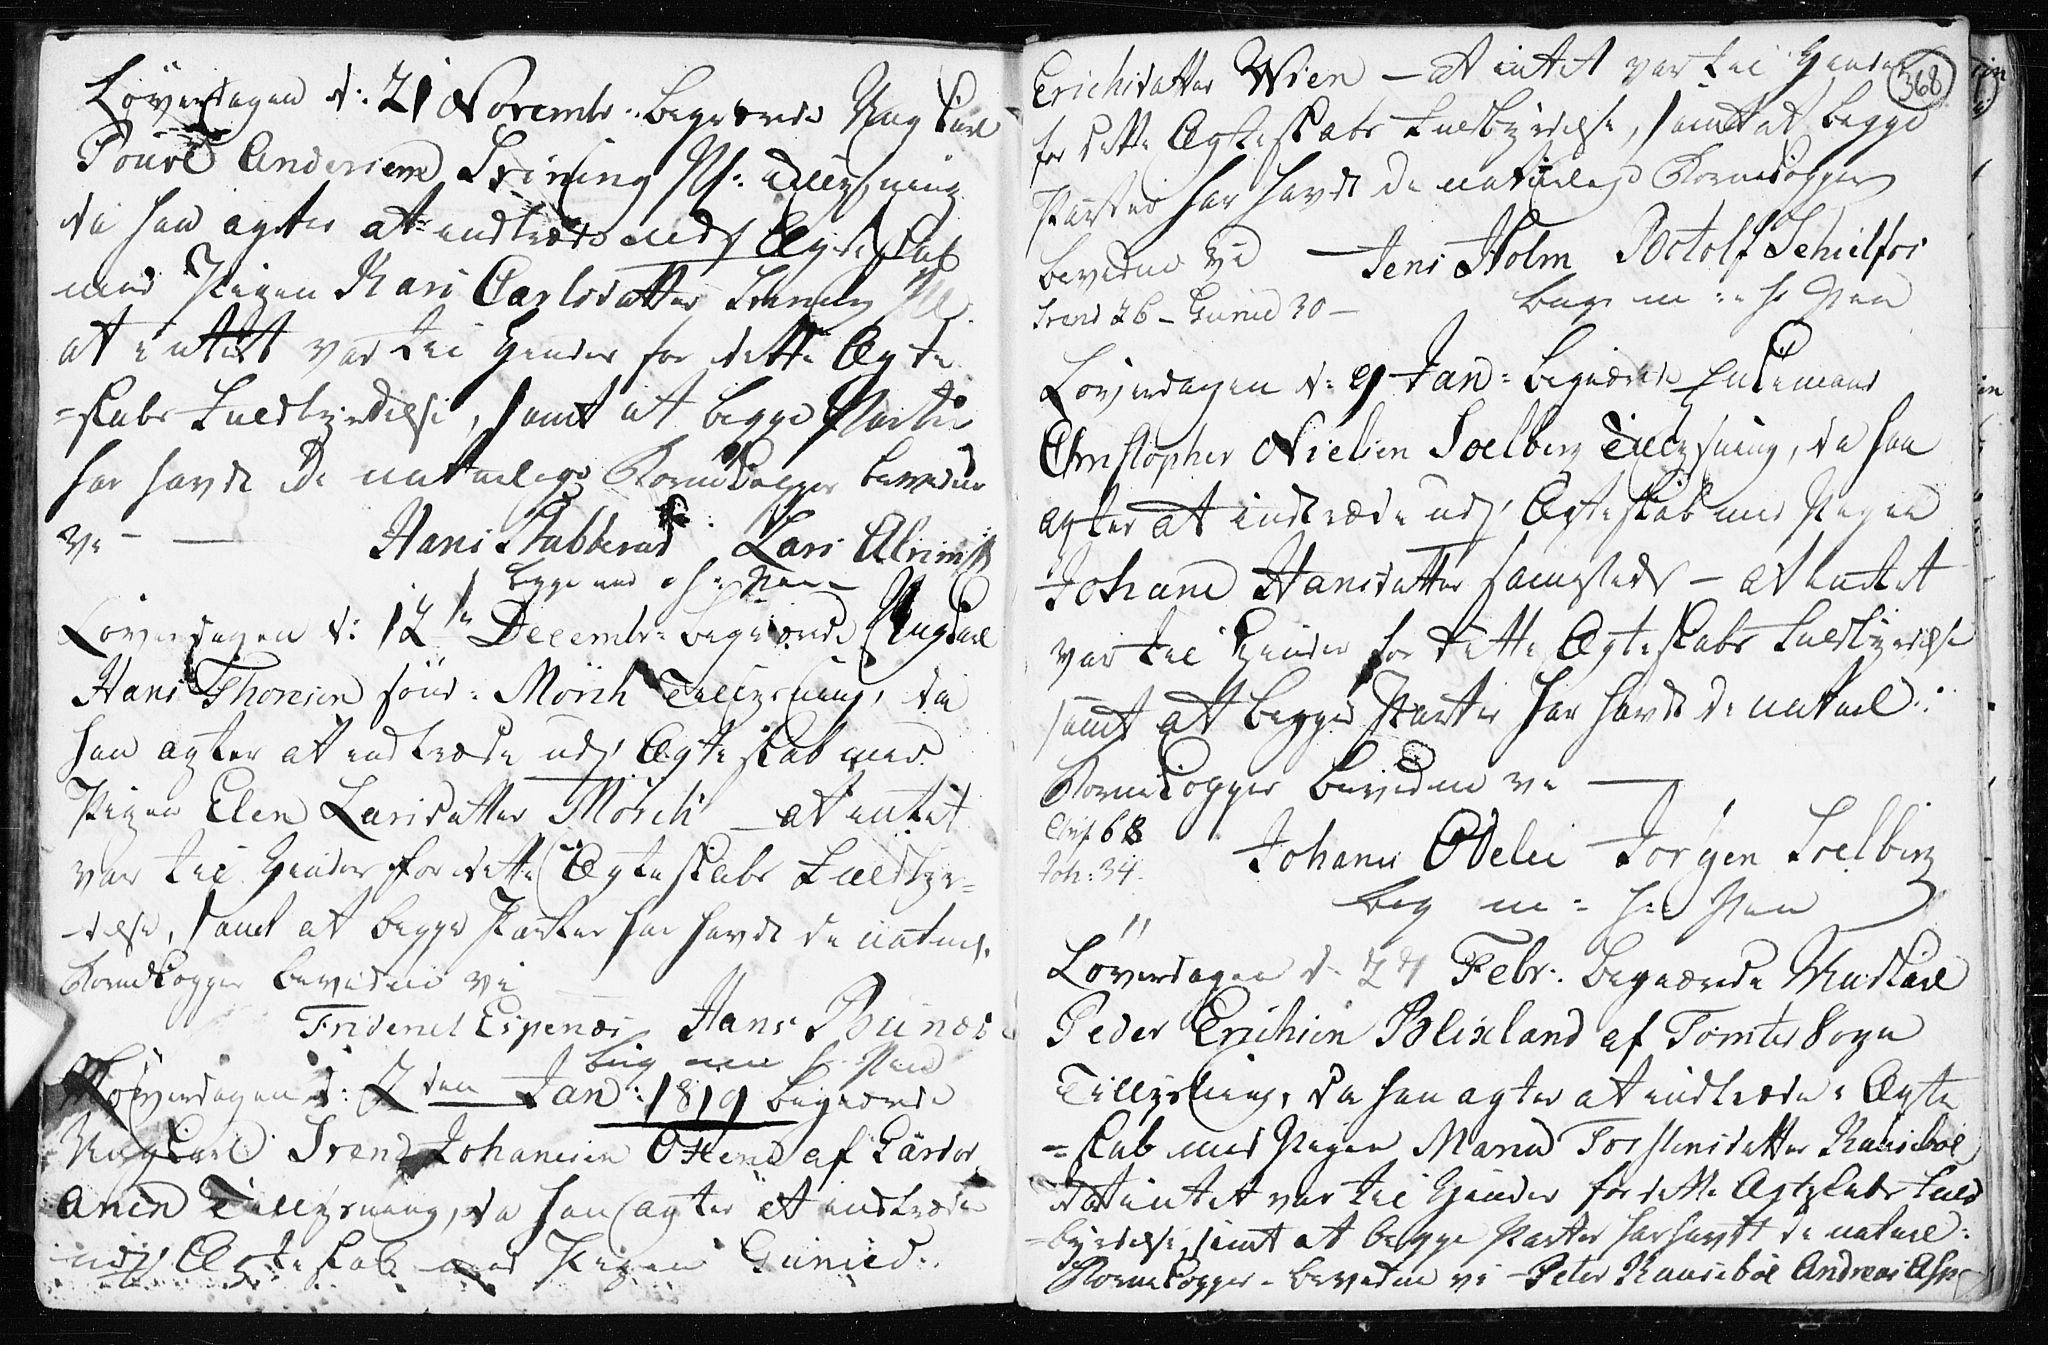 Löverdagen d: 21 Novembr: begærede Ungkarl
Poüvel Andersen Tillysning
da han agter at indtræde udj Ægteskab
med Pigen Kari Carlsdatter
at intet var til Hinder for dette Ægte
=skabs Fuldbyrdelse, samt at begge Parter
har havdt de naturlige Kornekopper bevidner
vi — Hans Stubberud Lars Alrim
begge med o h: Pen
Löverdagen d: 12te Decembr: begærede Ungkarl
Hans Thoresen sönd: Mörch Tillysning, da
han agter at indtræde udj Ægteskab med
Pigen Elen Larsdatter Mörch — at intet
var til Hinder for dette Ægteskabs Fuldbyr=
delse, samt at begge Parter har havdt de naturl:
Kornekopper bevidner vi
Friderick Espenæs Hans Bunæs
beg med h: Pen
Löverdagen d: 2den Jan: 1819 begærede
Ungkarl Svend Johanesen af
Tillysning, da han agter at indtræde
udj Ægteskab med Pigen Gunild:
368
Erichsdatter Wien — at intet var til Hinder
for dette Ægteskabs Fuldbyrdelse, samt at begge
Parter har havdt de naturlige Kornekopper
bevidner vi — Jens Holm Botolf
Svend 26 — Gunild 30 — begge m: h: Pen
Löverdagen d: 9 Jan: begærede Enkemand
Christopher Nielsen Soelberg Tillysning, da han
agter at indtræde udj Ægteskab med Pigen
Johane Hansdatter samsteds — at intet
var til Hinder for dette Ægteskabs Fuldbyrdelse
samt at begge Parter har havdt de naturl:
Kornekopper bevidner vi —
Chrif 68
Joh: 34.
Johanes Ødelie Jörgen Soelberg
beg m: h: Pen
Löverdagen d. 27 Febr: begærede Ungkarl
Peder Erichsen Blixland af Tomter Sogn
Tillysning, da han agter at indtræde i Ægte
=skab med Pigen Maria Torstensdatter Kausebøl
at intet var til Hinder for dette Ægteskabs Fuld
=byrdelse, samt at begge Parter har havdt de naturl:
Kornekopper — bevidner vi — Peter Kausebøl Andreas